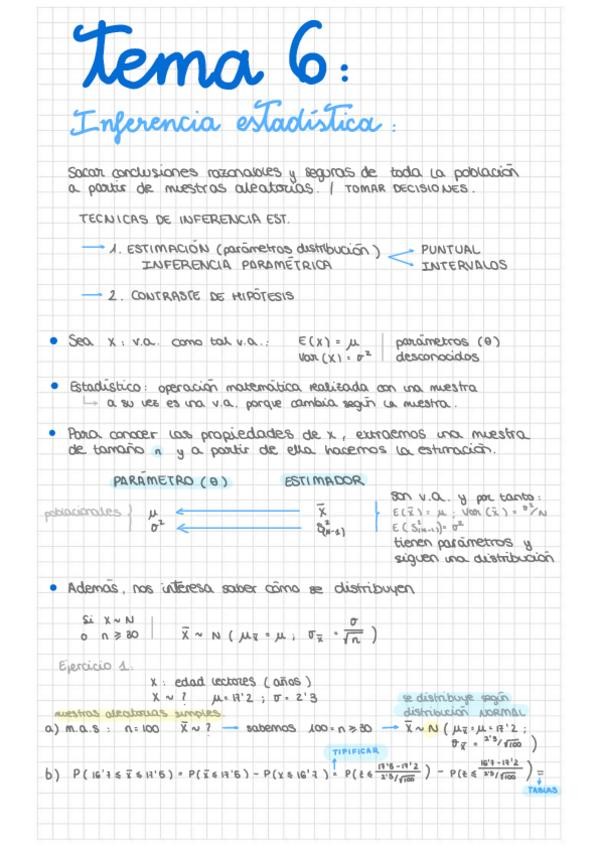 tema 6:
Inferencia estadística:
Sacar conclusiones razonables y seguras de toda la población
a partir de muestras aleatorias. / TOMAR DECISIONES.
TECNICAS DE INFERENCIA EST.
→ 1. ESTIMACIÓN (parámetros distribución) PUNTUAL
INFERENCIA PARAMÉTRICA INTERVALOS
→ 2. CONTRASTE DE HIPÓTESIS
• Sea X: v.a. como tal v.a.: E(X) = μ | parámetros (θ)
Var(X) = σ² | desconocidos
• Estadístico: operación matemática realizada con una muestra
↳ a su vez es una v.a. porque cambia según la muestra.
• Para conocer las propiedades de x, extraemos una muestra
de tamaño n y a partir de ella hacemos la estimación.
PARÁMETRO (θ) ESTIMADOR
poblacionales } μ ← x̄
σ² ← S²(n-1)
son v.a. y por tanto:
E(x̄) = μ ; Var(x̄) = σ²/N
E(S²(n-1)) = σ²
tienen parámetros y
siguen una distribución
• Además, nos interesa saber cómo se distribuyen
Si X ~ N
o n ≥ 30 | x̄ ~ N (μx̄ = μ ; σx̄ = σ/√n)
Ejercicio 1.
X: edad lectores (años)
X ~ ? μ = 17'2 ; σ = 2'3
muestras aleatorias simples
se distribuye según
distribución NORMAL
a) m.a.s: n=100 x̄ ~ ? → sabemos 100 = n ≥ 30 → x̄ ~ N (μx̄ = μ = 17'2 ;
σx̄ = 2'3/√100)
TIPIFICAR
b) P(16'7 ≤ x̄ ≤ 17'5) = P(x̄ ≤ 17'5) - P(x ≤ 16'7) = P(z ≤ 17'5-17'2 / 2'3/√100) - P(z ≤ 16'7-17'2 / 2'3/√100) =
TABLAS